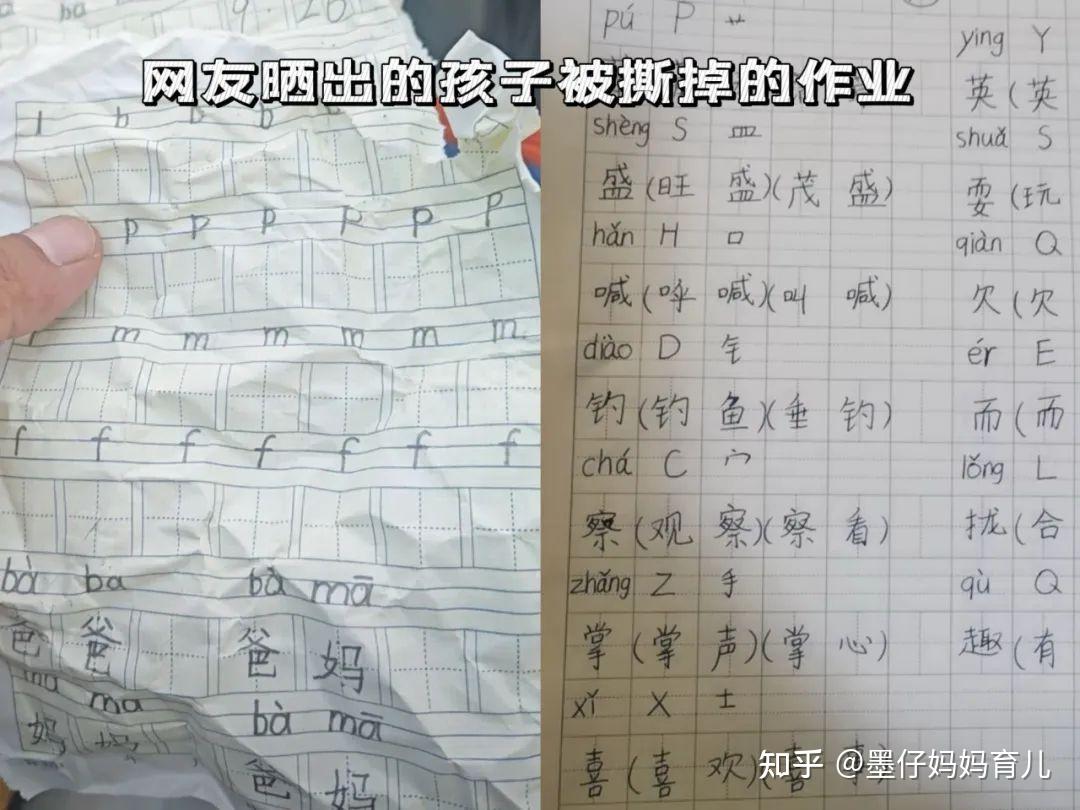 ba
9.26
网友晒出的孩子被撕掉的作业
p p p p p p
m m m m m m
f f f f f f f
bà ba bà mā
爸 爸 爸 妈
ma ma bà mā
妈 妈 爸 妈
pú P 艹
shèng S 皿
盛(旺 盛)(茂 盛)
hǎn H 口
喊(呼 喊)(叫 喊)
diào D 钅
钓(钓 鱼)(垂 钓)
chá C 宀
察(观 察)(察 看)
zhǎng Z 手
掌(掌 声)(掌 心)
xǐ X 士
喜(喜 欢)(喜
ying Y
英(英
shuǎ S
耍(玩
qiàn Q
欠(欠
ér E
而(而
lǒng L
拢(合
qù Q
趣(有
知乎 @墨仔妈妈育儿